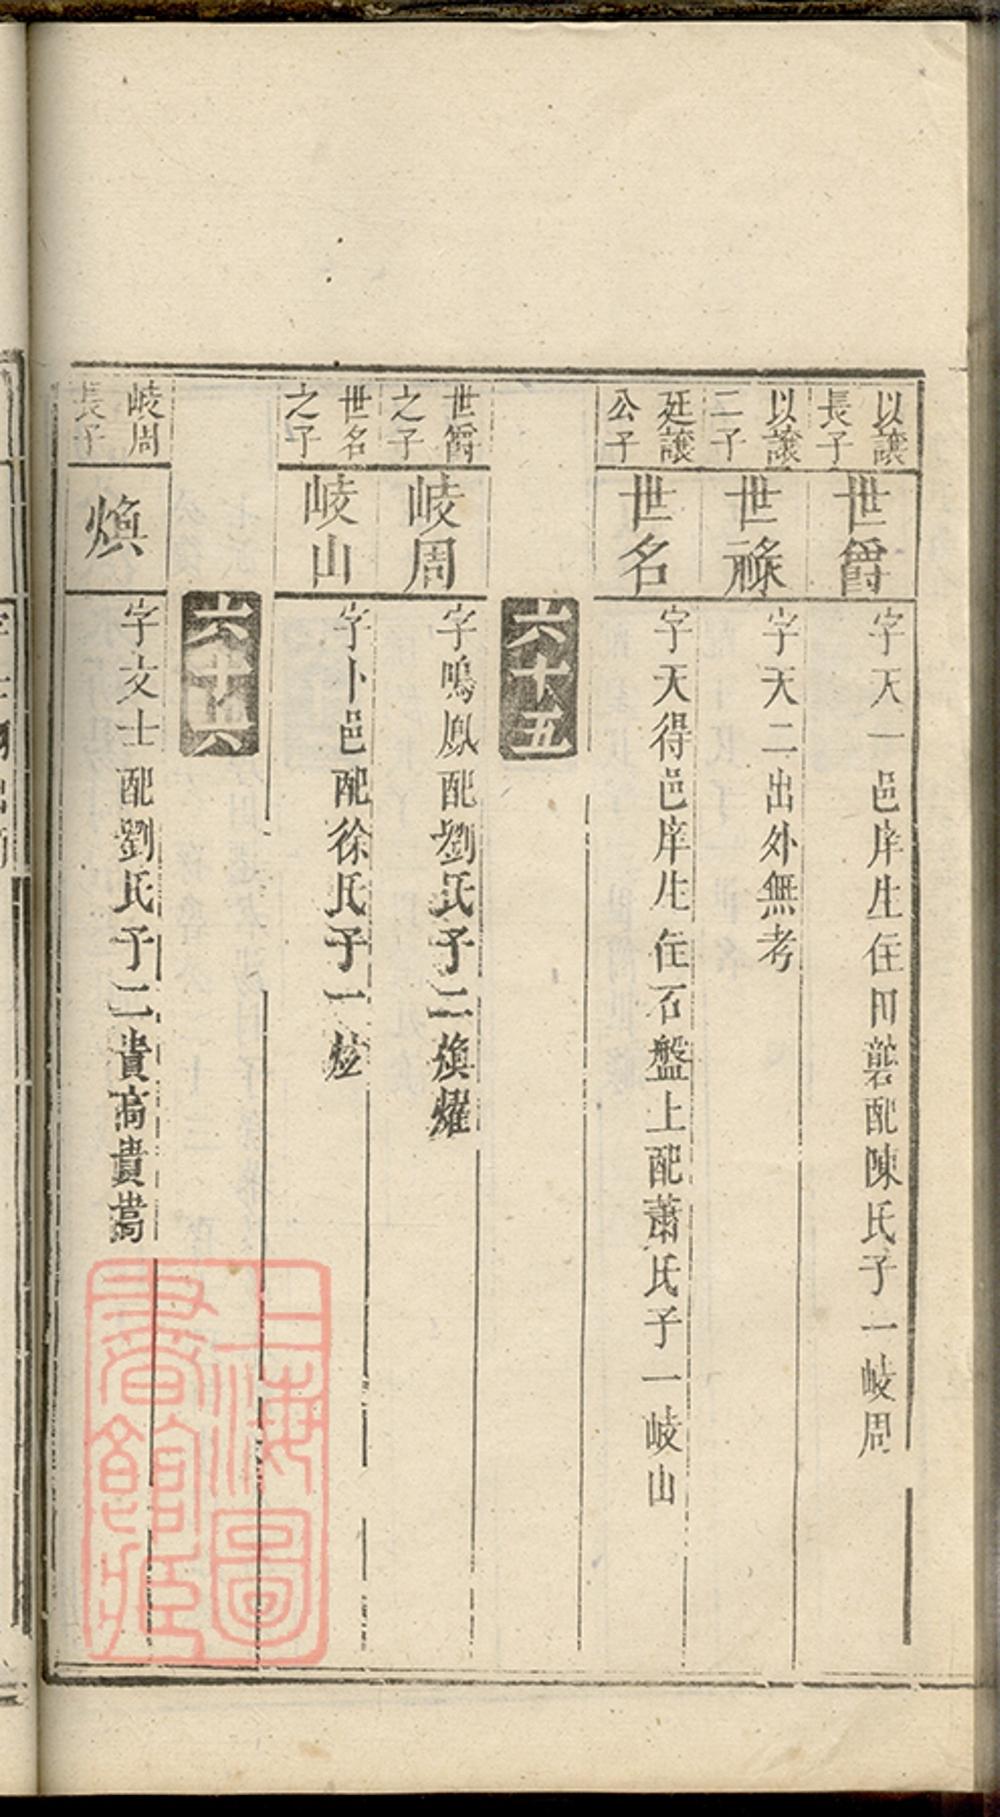 以讓
長子
世爵
字天一邑庠生住田礱配陳氏子一岐周
以讓
二子
世祿
字天二出外無考
廷讓
公子
世名
字天得邑庠生住石盤上配蕭氏子一岐山
六十五
世爵
之子
岐周
字鳴鳳配劉氏子二煥燿
世名
之子
岐山
字卜邑配徐氏子一炫
六十六
岐周
長子
煥
字文士配劉氏子二貴高貴嵩
上海圖
書館藏